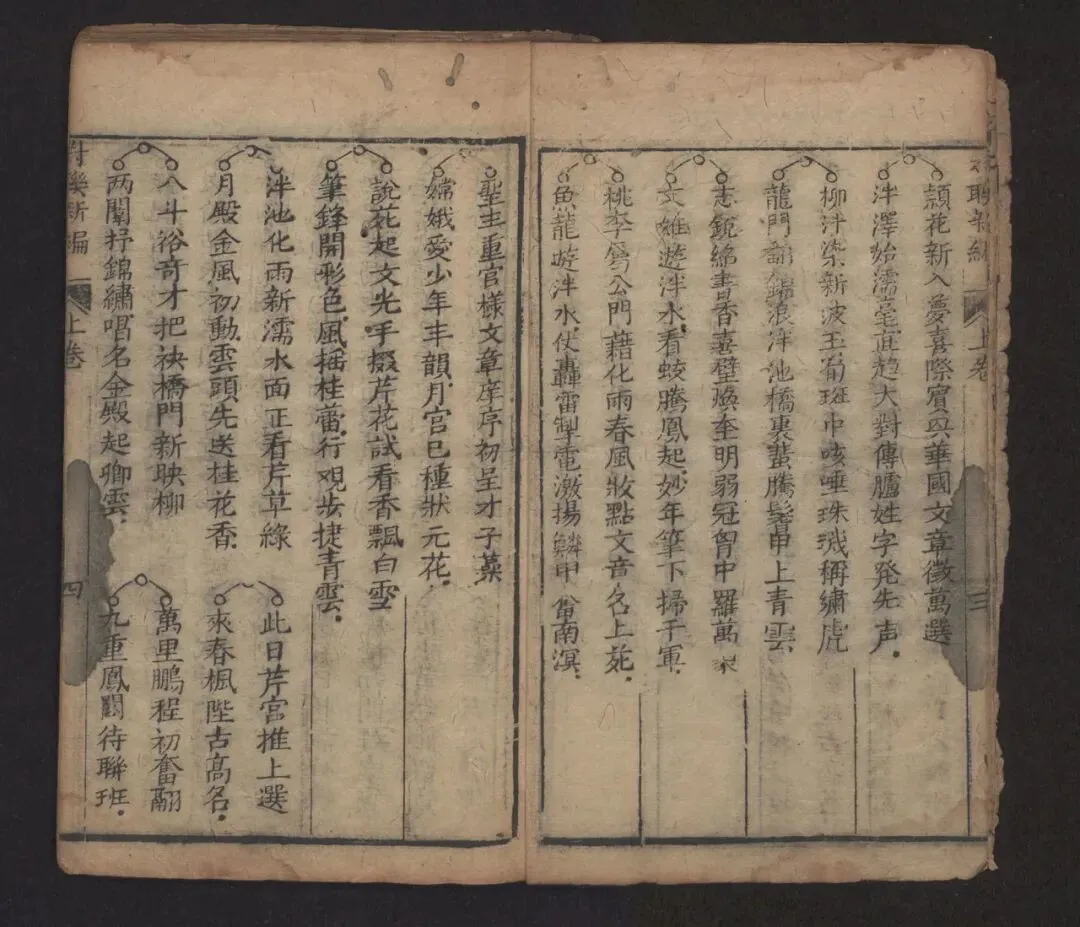 聯新編 上卷 三
頴花新入夢喜際賓興華國文章徵萬選
泮澤始濡毫疋趋大對傳臚姓字発先声
柳汁染新波玉荀班中咳唾珠璣稱繡虎
龍門翻錦浪泮池橋裏蜚騰鬐甲上青雲
志鏡綿書香喜壁煥奎明弱冠胷中羅萬象
文雄遊泮水看蛟騰鳳起妙年筆下掃千軍
桃李屬公門藉化雨春風妝點文音名上苑
魚龍遊泮水仗轟雷掣電激揚鱗甲奮南溟
聖主重官樣文章庠序初呈才子藻
嫦娥愛少年丰韻月宮已種狀元花
說花起文光手掇芹花試看香飄白雪
筆鋒開彩色風揺桂蕾行观步捷青雲
泮池化雨新濡水面正看芹草綠
月殿金風初動雲頭先送桂花香
八斗裕奇才把袂橋門新映柳
两闈抒錦繡唱名金殿起卿雲
此日芹宮推上選
來春楓陛占高名
萬里鵬程初奮翮
九重鳳闕待聯班
對聯新編 上卷 四